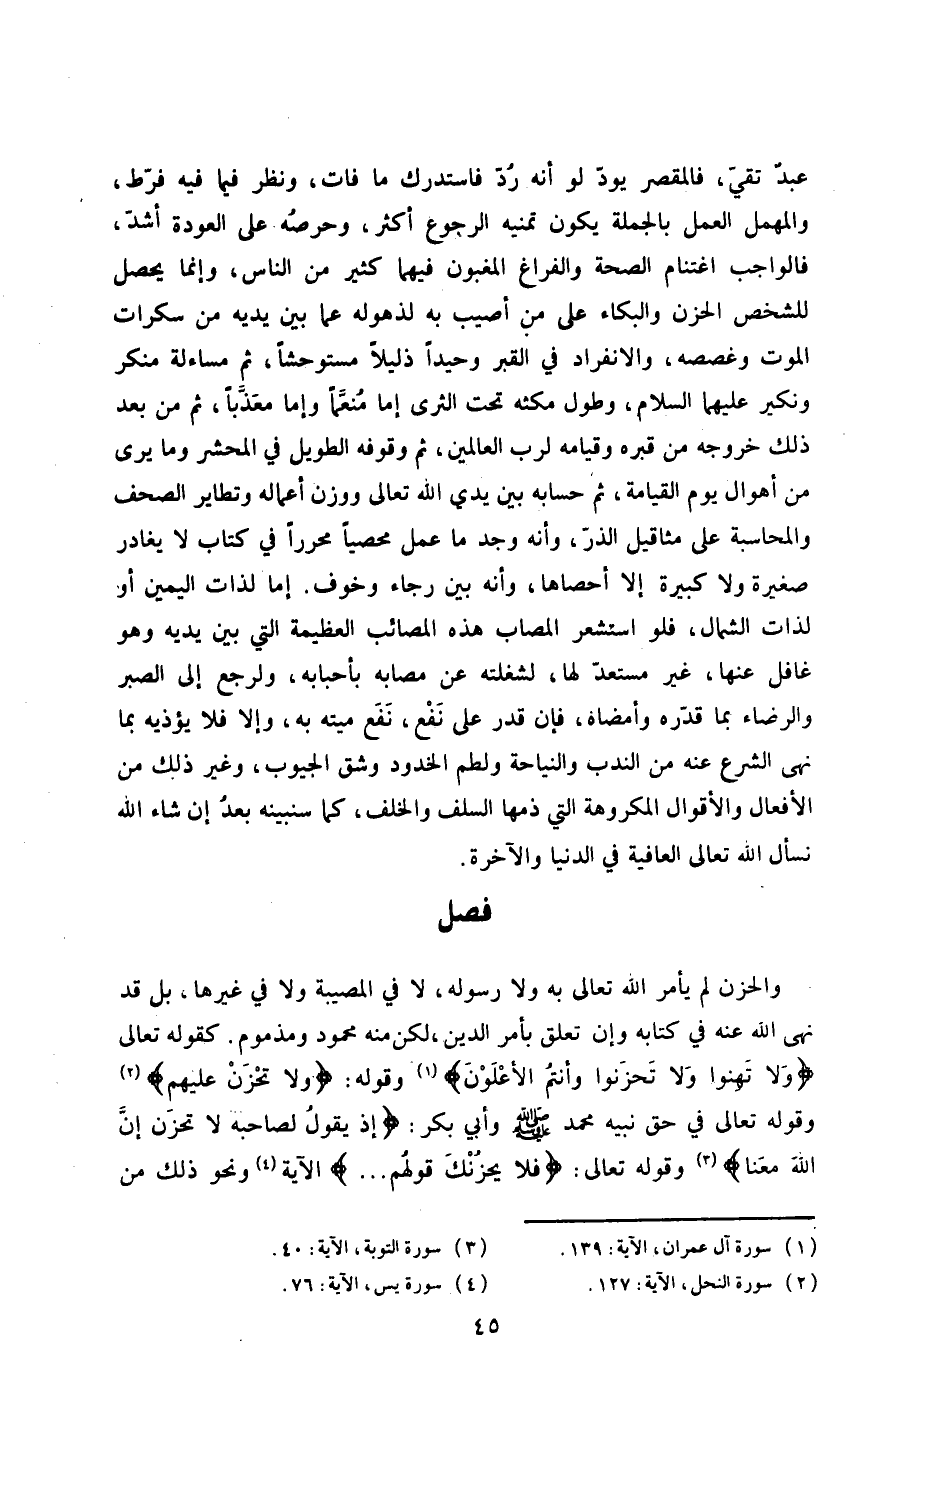 عبدٌ تقيّ، فالمقصر يودّ لو أنه رُدّ فاستدرك ما فات، ونظر فيما فيه فرّط،
والمهمل العمل بالجملة يكون تمنيه الرجوع أكثر، وحرصُه على العودة أشدّ،
فالواجب اغتنام الصحة والفراغ المغبون فيهما كثير من الناس، وإنما يحصل
للشخص الحزن والبكاء على من أصيب به لذهوله عما بين يديه من سكرات
الموت وغصصه، والانفراد في القبر وحيداً ذليلاً مستوحشاً، ثم مساءلة منكر
ونكير عليهما السلام، وطول مكثه تحت الثرى إما مُنعَّماً وإما معَذَّباً، ثم من بعد
ذلك خروجه من قبره وقيامه لرب العالمين، ثم وقوفه الطويل في المحشر وما يرى
من أهوال يوم القيامة، ثم حسابه بين يدي الله تعالى ووزن أعماله وتطاير الصحف
والمحاسبة على مثاقيل الذرّ، وأنه وجد ما عمل محصياً محرراً في كتاب لا يغادر
صغيرة ولا كبيرة إلا أحصاها، وأنه بين رجاء وخوف. إما لذات اليمين أو
لذات الشمال، فلو استشعر المصاب هذه المصائب العظيمة التي بين يديه وهو
غافل عنها، غير مستعدّ لها، لشغلته عن مصابه بأحبابه، ولرجع إلى الصبر
والرضاء بما قدّره وأمضاه، فإن قدر على نَفْع، نَفَع ميته به، وإلا فلا يؤذيه بما
نهى الشرع عنه من الندب والنياحة ولطم الخدود وشق الجيوب، وغير ذلك من
الأفعال والأقوال المكروهة التي ذمها السلف والخلف، كما سنبينه بعدُ إن شاء الله
نسأل الله تعالى العافية في الدنيا والآخرة.
فصل
والحزن لم يأمر الله تعالى به ولا رسوله، لا في المصيبة ولا في غيرها، بل قد
نهى الله عنه في كتابه وإن تعلق بأمر الدين، لكن منه محمود ومذموم. كقوله تعالى
﴿وَلا تَهِنوا وَلا تَحزَنوا وأنتمُ الأعْلَوْنَ﴾(١) وقوله: ﴿ولا تحْزَنْ عليهم﴾(٢)
وقوله تعالى في حق نبيه محمد ﷺ وأبي بكر: ﴿إذ يقولُ لصاحبه لا تحزَن إنَّ
اللهَ معَنا﴾(٣) وقوله تعالى: ﴿فلا يحزُنْكَ قولهُم... ﴾ الآية(٤) ونحو ذلك من
(١) سورة آل عمران، الآية: ١٣٩.
(٢) سورة النحل، الآية: ١٢٧.
(٣) سورة التوبة، الآية: ٤٠.
(٤) سورة يس، الآية: ٧٦.
٤٥